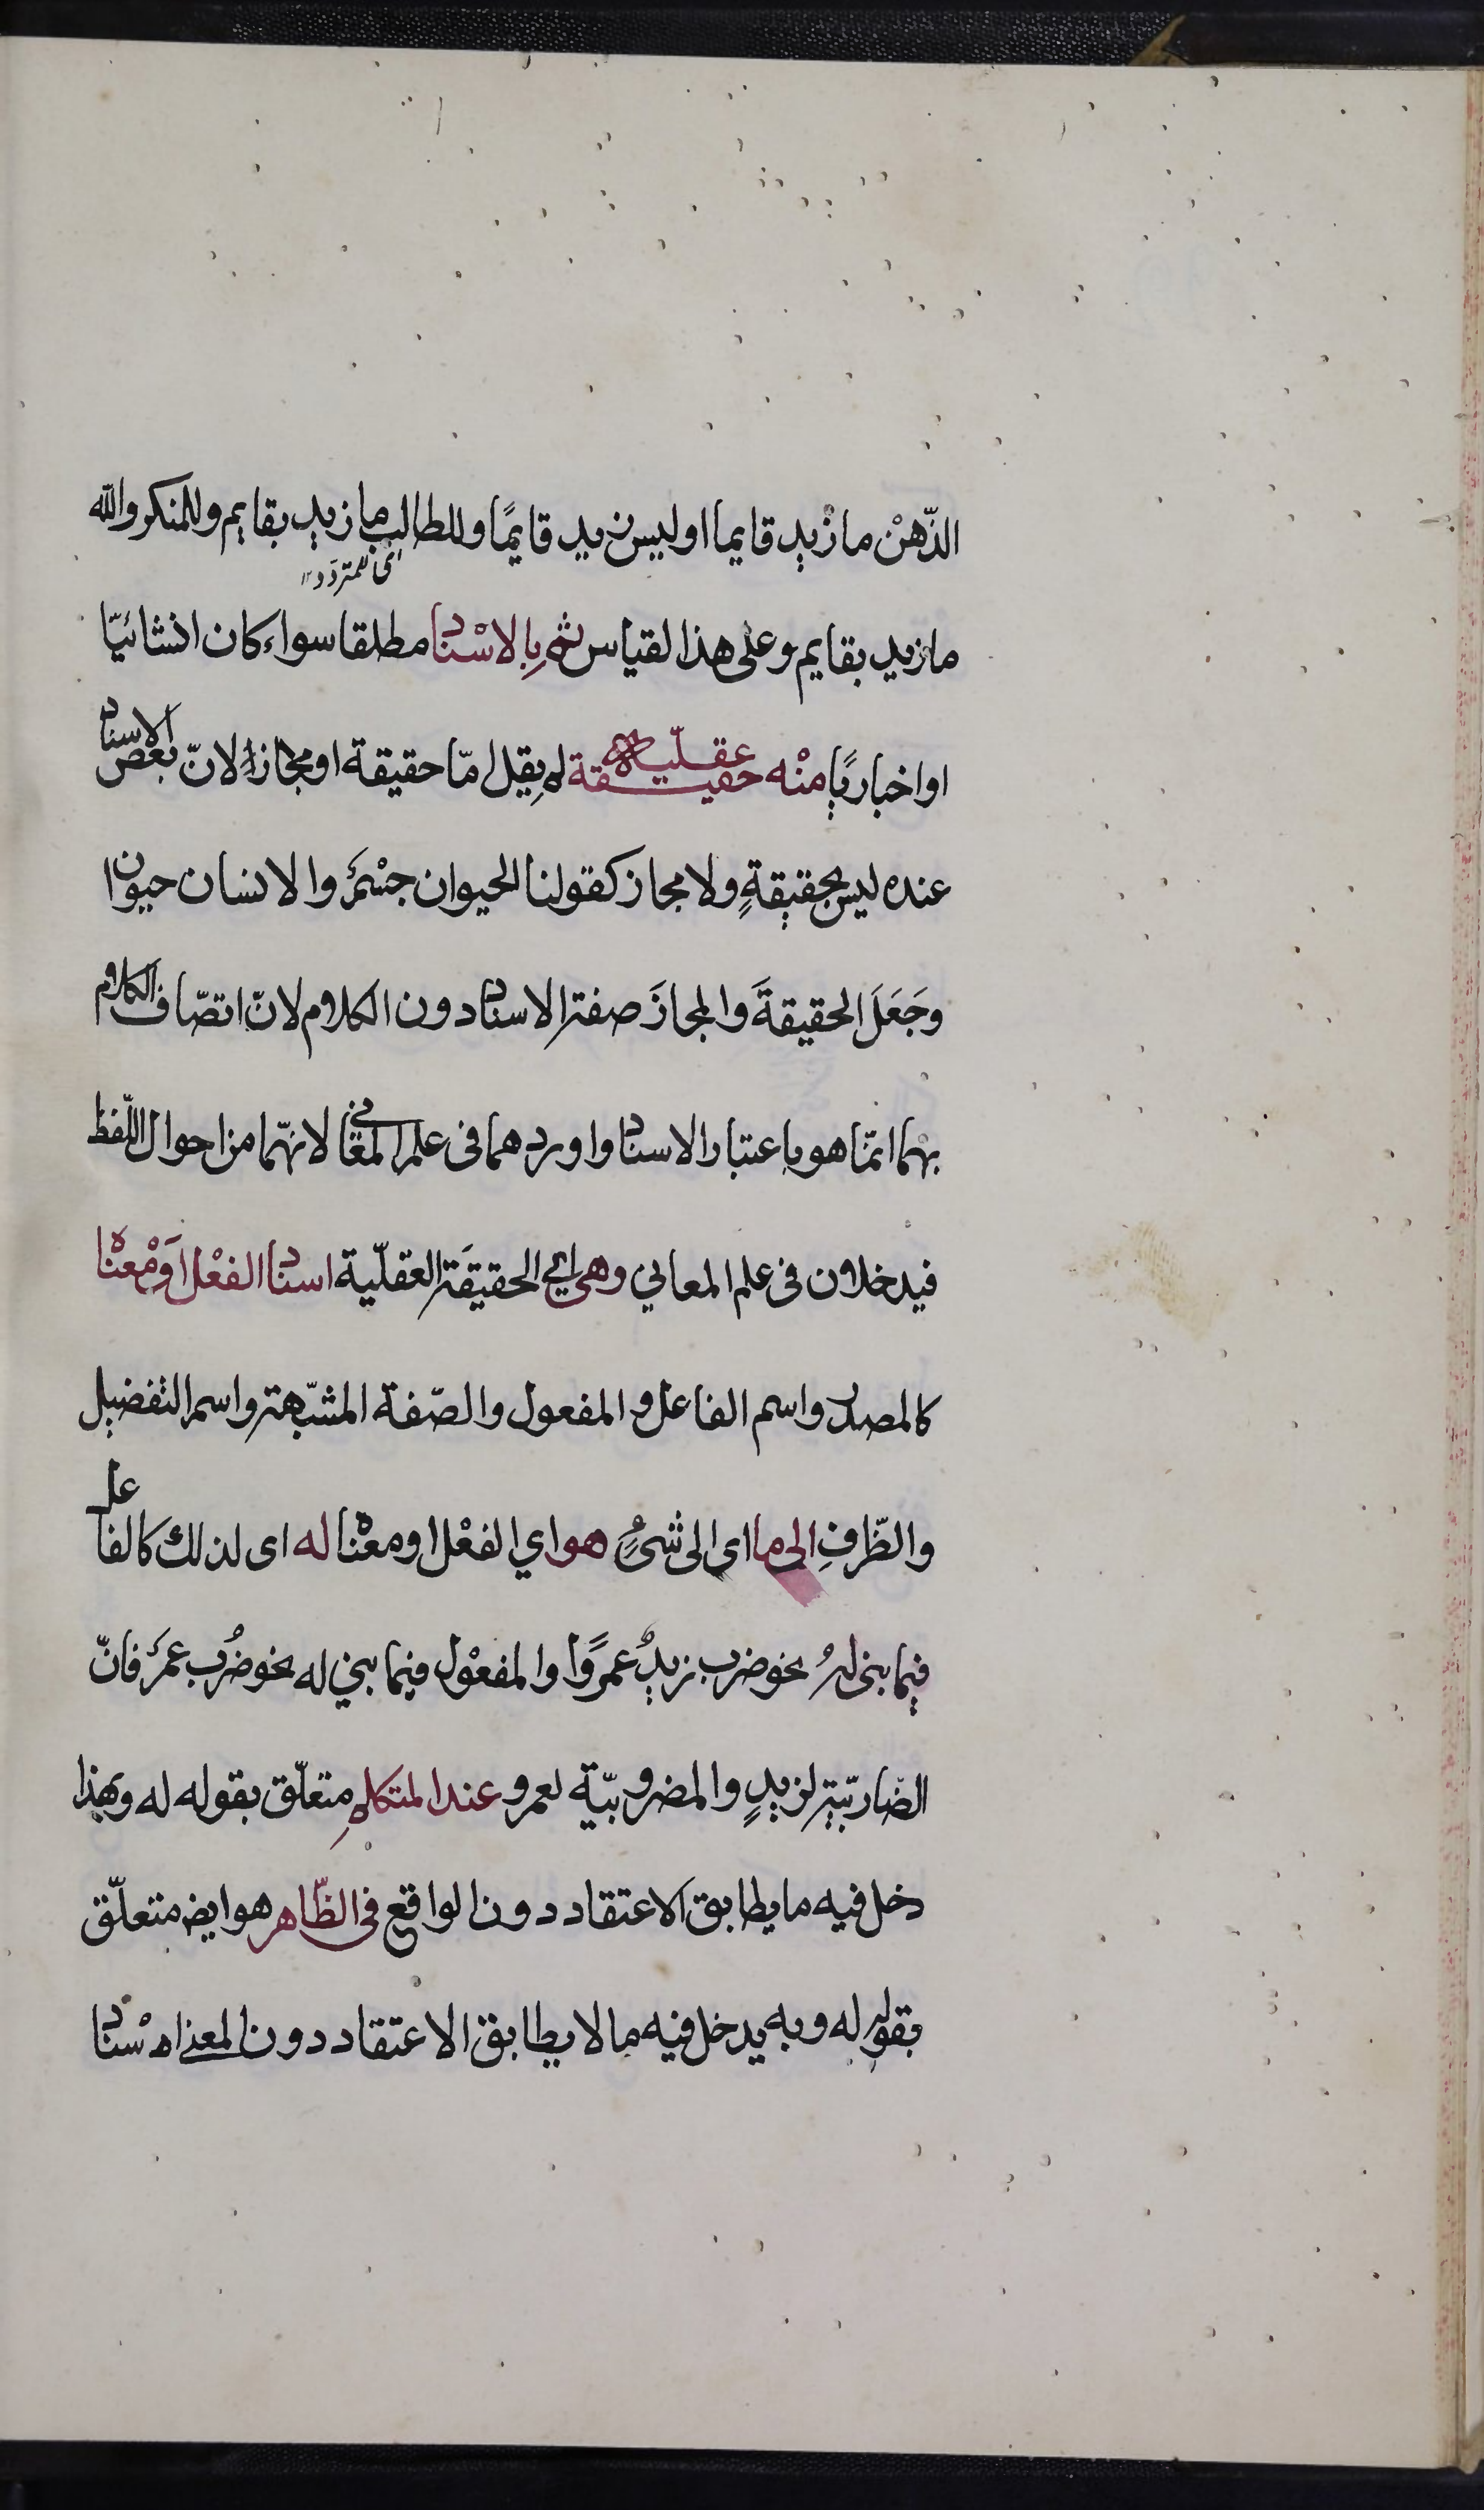 الذّهن ما زيد قايما او ليس زيد قايمًا وللطالب ما زيد بقايم وللمنكر والله
اى للمتردد
ما زيد بقايم وعلى هذا لقياس ثم بالاسْناد مطلقا سواء كان انشائيّا
او اخباريًا منْه حقيقة عقليّة لم يقل امّا حقيقة او مجاز لانّ بعض الاسناد
عنده ليس بحقيقةٍ ولا مجاز كقولنا الحيوان جسْمٌ والانسان حيوان
وجَعَلَ الحقيقةَ والمجازَ صفة الاسناد دون الكلام لانّ اتصّاف الكلام
بهما انمّا هو باعتبار الاسناد واوردهما فى علم المعانى لانهّما من احوال اللّفظ
فيدخلان فى علم المعانى وهى اي الحقيقَة العقليّة اسناد الفعْل اَوْ معْناه
كالمصدر واسم الفاعل والمفعول والصّفة المشبّهة واسم التفضيل
والظّرفِ الى ما اى الى شىءٍ هو اي الفعْل او معْناه له اى لذلك كالفاعل
فيما بنى له نحو ضرب زيدٌ عمرًوا والمفعْول فيما بني له نحو ضُرب عمرٌ فانّ
الضّاربيّة لزيدٍ والمضروبيّة لعمرو عند المتكلم متعلّق بقوله له وبهذا
دخل فيه ما يطابق الاعتقاد دون الواقع فى الظّاهر هو ايض متعلّق
بقوله له وبه يدخل فيه ما لا يطابق الاعتقاد دون المعنى اسْناد